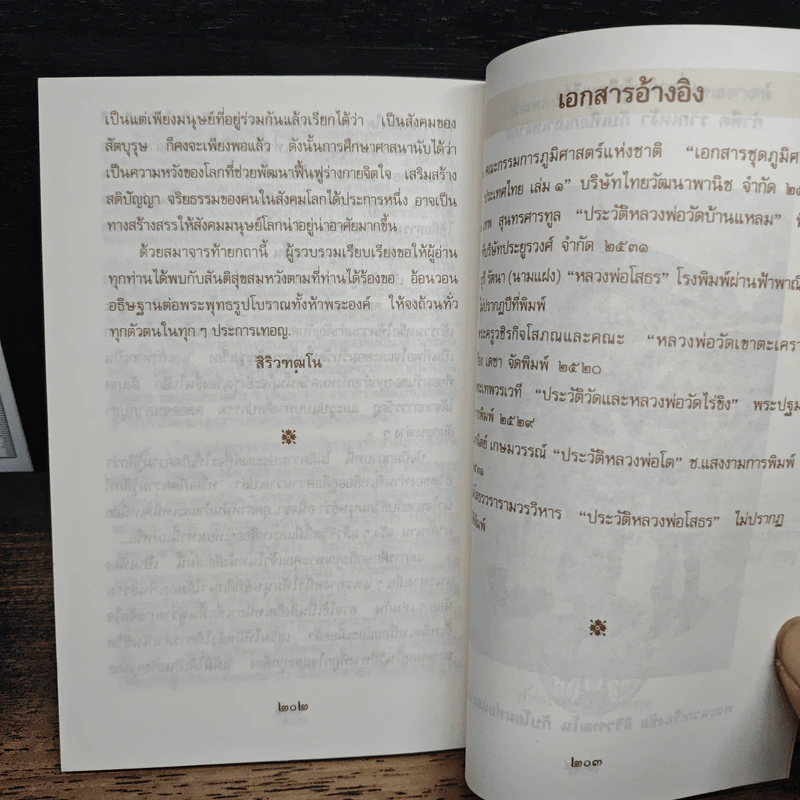 เป็นแต่เพียงมนุษย์ที่อยู่ร่วมกันแล้วเรียกได้ว่า เป็นสังคมของ
สัตบุรุษ ก็คงจะเพียงพอแล้ว ดังนั้นการศึกษาศาสนานับได้ว่า
เป็นความหวังของโลกที่ช่วยพัฒนาฟื้นฟูร่างกายจิตใจ เสริมสร้าง
สติปัญญา จริยธรรมของคนในสังคมโลกได้ประการหนึ่ง อาจเป็น
ทางสร้างสรรให้สังคมมนุษย์โลกน่าอยู่น่าอาศัยมากขึ้น
ด้วยสมาจารท้ายกถานี้ ผู้รวบรวมเรียบเรียงขอให้ผู้อ่าน
ทุกท่านได้พบกับสันติสุขสมหวังตามที่ท่านได้ร้องขอ อ้อนวอน
อธิษฐานต่อพระพุทธรูปโบราณทั้งห้าพระองค์ ให้จงถ้วนทั่ว
ทุกตัวตนในทุก ๆ ประการเทอญ.
สิริวฑฺฒโน
๒๐๒
เอกสารอ้างอิง
คณะกรรมการภูมิศาสตร์แห่งชาติ "เอกสารชุดภูมิศ
ประเทศไทย เล่ม ๑" บริษัทไทยวัฒนาพานิช จำกัด
สุนทรศารทูล "ประวัติหลวงพ่อวัดบ้านแหลม"
บริษัทประยูรวงศ์ จำกัด ๒๕๓๑
รัตนา (นามแฝง) "หลวงพ่อโสธร" โรงพิมพ์ผ่านฟ้าพาณิ
ไม่ปรากฏปีที่พิมพ์
พระครูวชิรกิจโสภณและคณะ "หลวงพ่อวัดเขาตะเครา
เดชา จัดพิมพ์ ๒๕๒๐
พระเทพวรเวที "ประวัติวัดและหลวงพ่อวัดไร่ขิง" พระปฐม
การพิมพ์ ๒๕๒๙
เกษมวรรณ์ "ประวัติหลวงพ่อโต" ช.แสงงามการพิมพ์
โสธรวรารามวรวิหาร "ประวัติหลวงพ่อโสธร" ไม่ปรากฏ
พิมพ์
๒๐๓